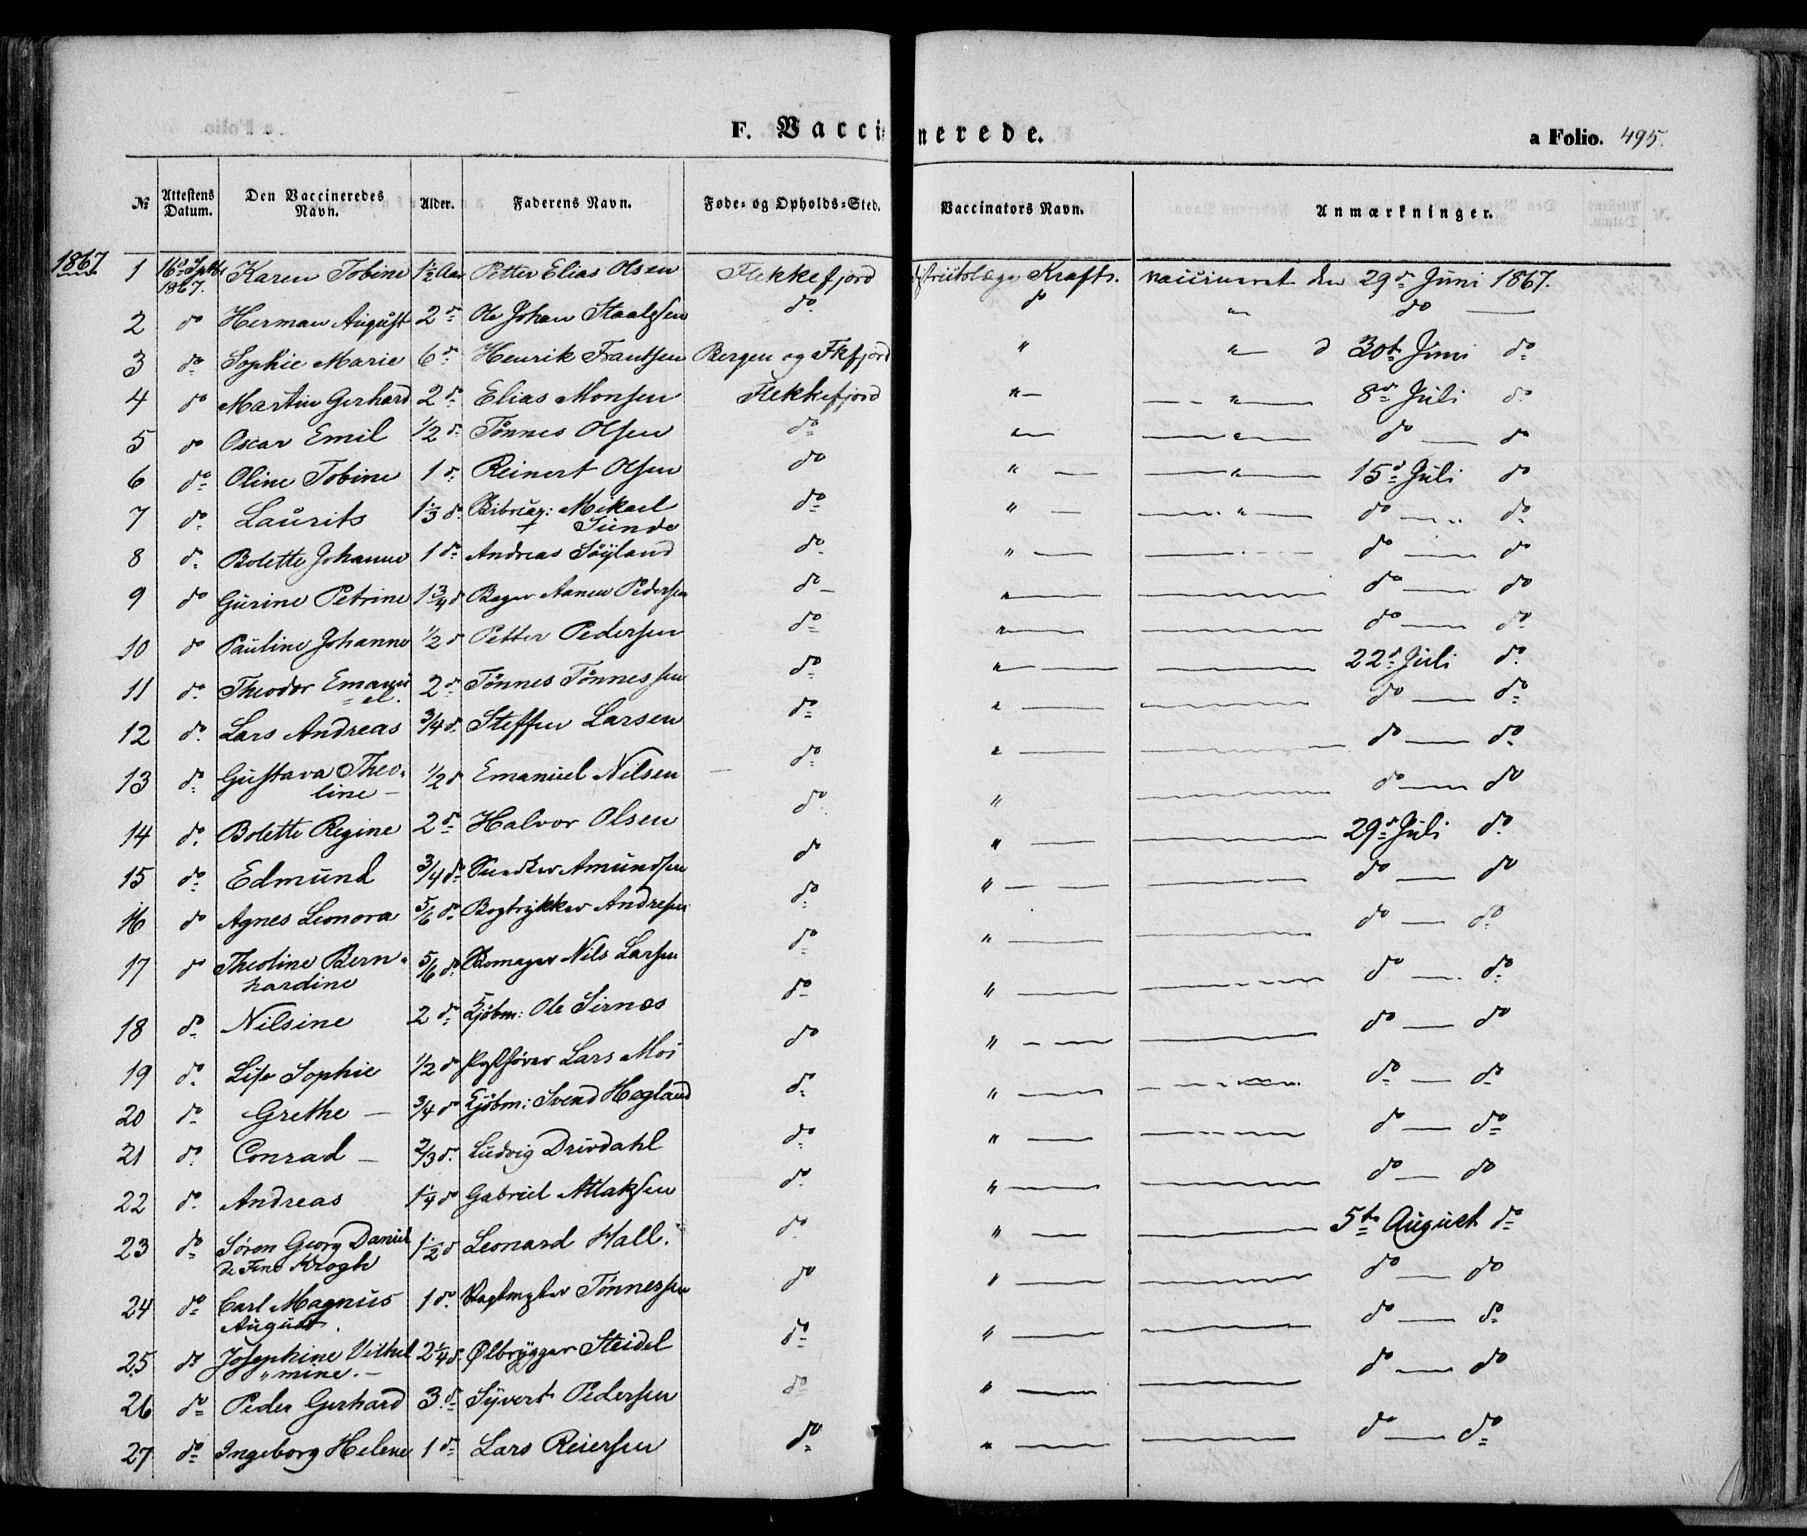 F. Vaccinerede.
a Folio. 495.
№ Attestens Datum. Den Vaccineredes Navn. Alder. Faderens Navn. Føde- og Opholds-Sted. Vaccinators Navn. Anmærkninger.
1867
1 16d Septbr 1867. Karen Tobine 1½ Aar Petter Elias Olsen Flekkefjord Districtslæge Krafts. vaccineret den 29d Juni 1867.
2 do Herman August 2 do Ole Johan Staalesen do do " do
3 do Sophie Marie 6 do Henrik Frantsen Bergen og Fkfjord " " d 30te Juni do
4 do Martin Gerhard 2 do Elias Monsen Flekkefjord " " 8d Juli do
5 do Oscar Emil ½ do Tönnes Olsen do " " do do
6 do Oline Tobine 1 do Reinert Olsen do " " 15d Juli do
7 do Laurits 1⅓ do Mikael Sunde do " " do do
8 do Bolette Johanne 1 do Andreas Söyland do " do do
9 do Gurine Petrine 1¾ do Bager Aanen Pedersen do " do do
10 do Pauline Johanne ½ do Petter Pedersen do " do do
11 do Theodor Emanuel. 2 do Tönnes Tönnessen do " 22d Juli do
12 do Lars Andreas ¾ do Steffen Larsen do " do do
13 do Gustava Theoline ½ do Emanuel Nilsen do " do do
14 do Bolette Regine 2 do Halvor Olsen do " do do
15 do Edmund ¾ do Amundsen do " 29d Juli do
16 do Agnes Leonora 5/6 do Bogtrykker Andresen do " do do
17 do Theoline Bernhardine 5/6 do Nils Larsen do " do do
18 do Nilsine 2 do Kjöbm: Ole Sirnes do " do do
19 do Lise Sophie ½ do Lars Moi do " do do
20 do Grethe ¾ do Kjöbm: Svend Hegland do " do do
21 do Conrad ⅔ do Ludvig Drivdahl do " do do
22 do Andreas 1¼ do Gabriel Aslaksen do " do do
23 do Søren Georg Daniel de Fine Krogh 1½ do Leonard Hall. do " 5te August do
24 do Carl Magnus August. 1 do Tönnessen do " do do
25 do Josephine Vilhelmine. 2¼ do Ølbrygger Steidel do " do do
26 do Peder Gerhard 3 do Syvert Pedersen do " do do
27 do Ingeborg Helene 1 do Lars Reiersen do " do do